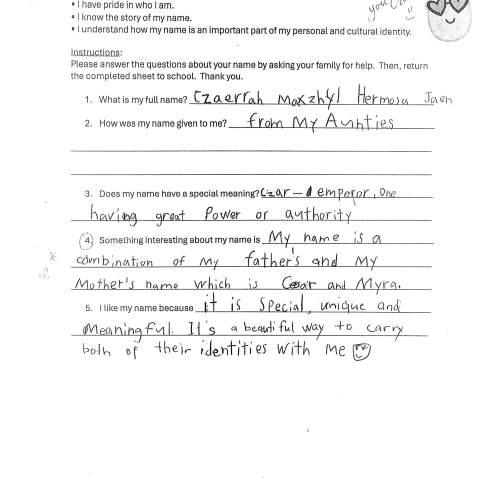 • I have pride in who I am.
• I know the story of my name.
• I understand how my name is an important part of my personal and cultural identity.
Instructions:
Please answer the questions about your name by asking your family for help. Then, return
the completed sheet to school. Thank you.
1. What is my full name? Czaerrah Maxzhyl Hermosa Jaen
2. How was my name given to me? from My Aunties
3. Does my name have a special meaning? Czar - emperor, one
having great Power or authority
4. Something interesting about my name is My name is a
combination of my father's and My
Mother's name which is Cesar and Myra.
5. I like my name because it is special, unique and
Meaningful. It's a beautiful way to carry
both of their identities with me